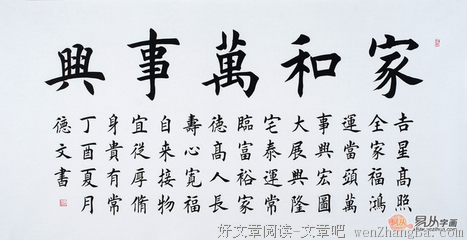 家和萬事興
吉星高照
全家福鴻
運當頭萬
事興宏圖
大展興隆
宅泰運常
臨富裕家
德高人長
壽心寬福
自來接物
宜從厚脩
身貴有常
丁酉夏月
德文書
易从字画
好文章阅读-文章吧 wenZhangba.com